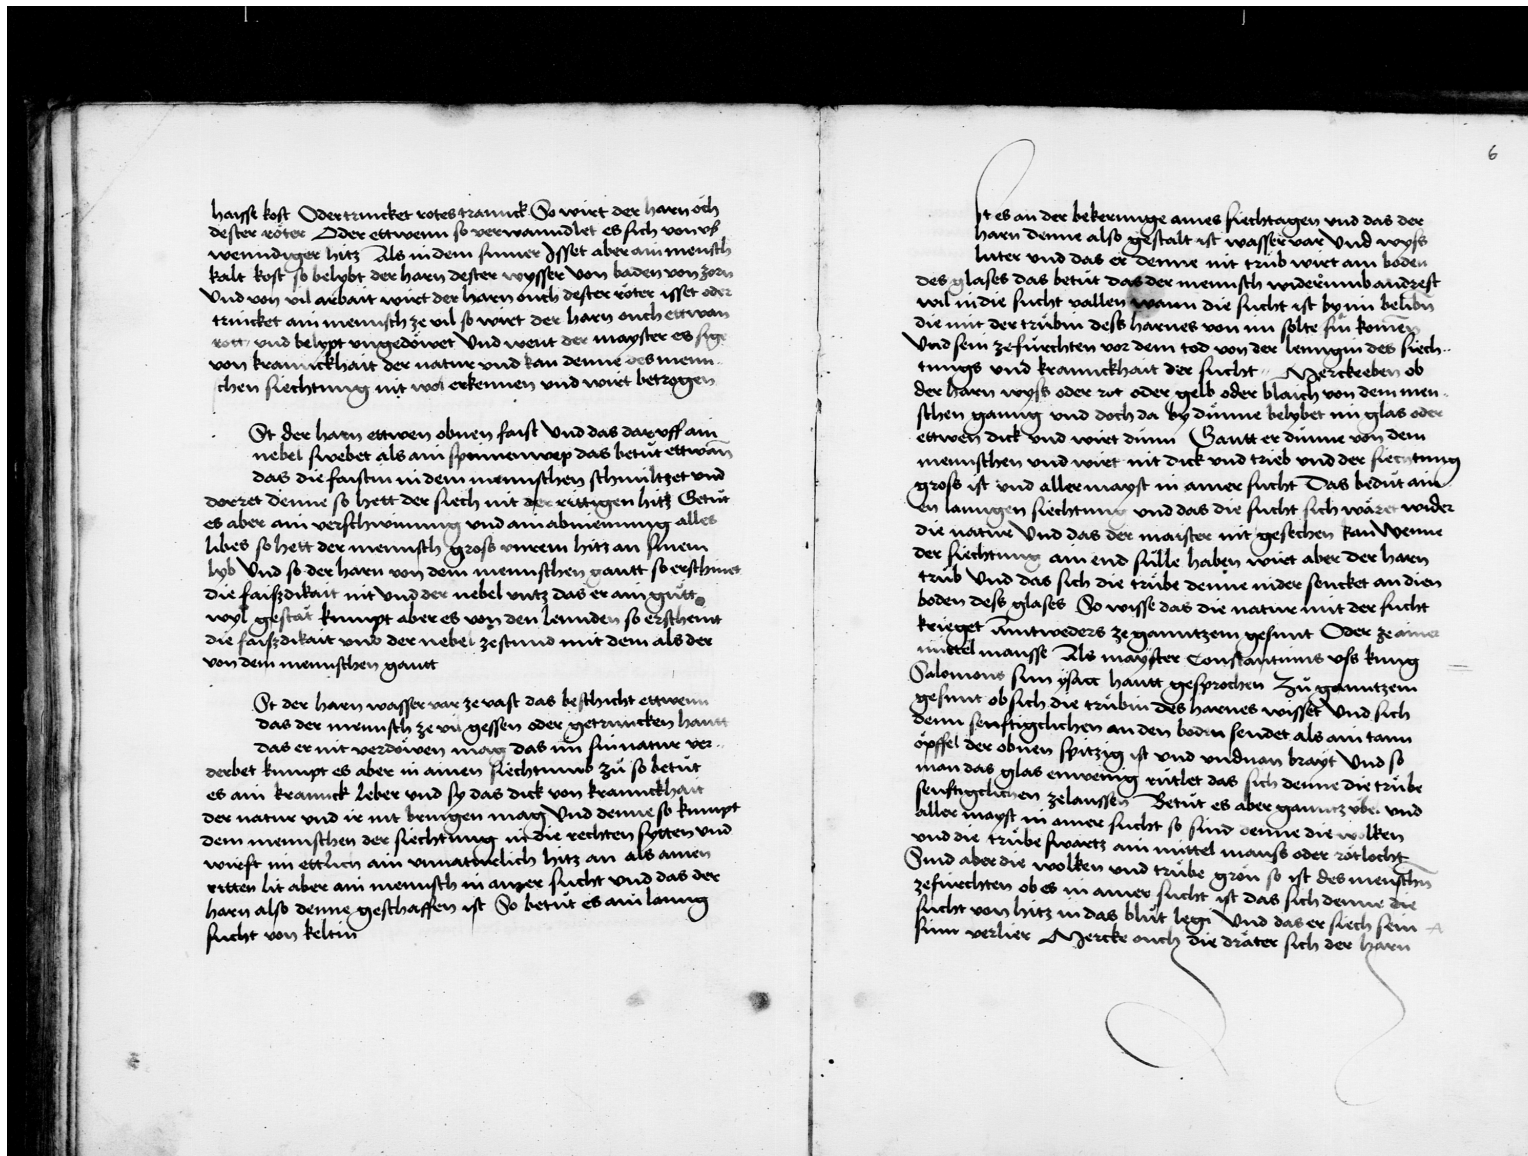 haisse kost Oder trincket rotes tranck So wirt der harn och
dester röter Oder ettwenn so verwanndlet es sich von vss
wenndiger hitz Als in dem summer Jsset aber ain mensch
kalt kost so belybt der harn dester wysser Von baden von zorn
Vnd von vil arbait wirt der harn ouch dester röter isset oder
trincket ain mensch ze vil so wirt der harn ouch ettwan
rott vnd belypt vngedöwet Vnd went der mayster es sige
von kranckhait der natur vnd kan denne des menn
schen siechtung nit wol erkennen vnd wirt betrogen
St der harn ettwen obnen faist Vnd das dar vff ain
nebel swebet als ain spinnenwep das betüt ettwan
das die faistin in dem mennschen schmiltzet vnd
dorret denne so hett der siech nit der rittigen hitz Betüt
es aber ain verschwinung vnd ain abniemung alles
libes so hett der mennsch gross vnrein hitz an sinem
lyb Vnd so der harn von dem mennschen gantt so erschinet
die faiszdikait nit Vnd der nebel vntz das er ain gütt
wyl gestät kumpt aber es von den lennden so erscheint
die faiszdikait vnd der nebel zestund mit dem als der
von dem mennschen gantt
St der harn wasser var ze vast das beschicht ettwenn
das der mennsch ze vil gessen oder getruncken hantt
das er nit verdöwen mag das im sin natur ver
derbet kumpt es aber in ainen siechtumb zü so betüt
es ain kranck leber vnd sy das dick von kranckhait
der natur vnd ir nit bringen mag Vnd denne so kumpt
dem mennschen der siechtung in die rechten sytten vnd
wirft in ettlich ain vnnatürlich hitz an als ainen
ritten lit aber ain mennsch in ainer sucht vnd das der
harn also denne geschaffen ist So betüt es ain lanng
sucht von keltin
6
Jt es an der bekerunge aines siechtagen vnd das der
harn denne also gestalt ist wasser var Vnd wyss
luter vnd das er denne nit trüb wirt am boden
des glases das betüt das der mennsch widerumb andrest
wil in die sucht vallen wann die sucht ist by im belibn
die mit der trübin dess harnes von im solte sin komen
Vnd sem zefürchten vor dem tod von der lenngin des siech
tungs vnd kranckhait der sucht Merck eben ob
der harn wyss oder rot oder gelb oder blaich von dem men
schen ganng vnd doch da by dünne belybet im glas oder
ettwen dick vnd wirt dünn Gantt er dünne von dem
mennschen vnd wirt nit dick vnd trieb vnd der siechtung
gross ist vnd aller mayst in ainer sucht Das bedüt ain
en lanngen siechtung vnd das die sucht sich wäret wider
die natur Vnd das der maister nit gesechen kan Wenne
der siechtung ain end sülle haben wirt aber der harn
trüb Vnd das sich die trübe denne nider sencket an dien
boden dess glases So wisse das die natur mit der sucht
krieget Aintweders ze ganntzem gesunt Oder ze ainer
mittel mausse Als mayster Constantinus vss kung
Salomons sun ysacc hantt gesprochen Zü ganntzem
gesunt ob sich die trübin des harnes wisset Vnd sich
denn senftigclichen an den boden sendet als ain tann
öpffel der obnen spitzig ist vnd vndnan brayt Vnd so
man das glas ein wenig rütlet das sich denne die trübe
senftigclichen zelaussen Betüt es aber ganntz übel vnd
aller mayst in ainer sucht so sind denne die wolken
vnd die trübe swartz ain mittel mauss oder rötlocht
Sind aber die wolken vnd trübe grön so ist des menschn
zefürchten ob es in ainer sucht ist das sich denne die
sucht von hitz in das blüt legi Vnd das er siech sein
sinn verlier Mercke ouch die dräter sich der harn